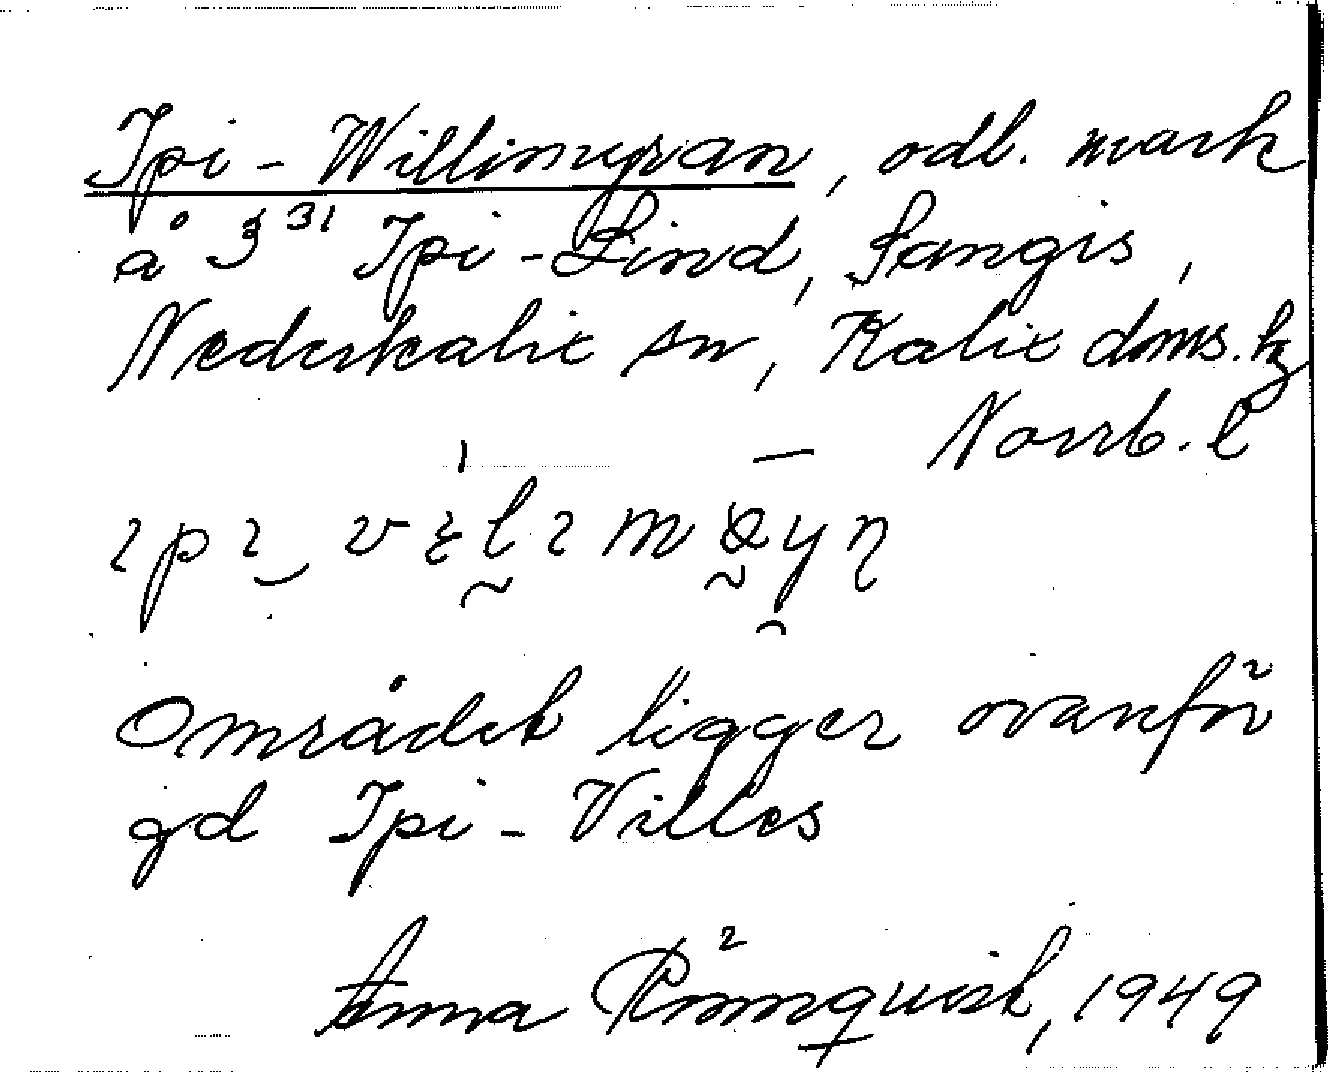 Ipi-Willimyran, odl. mark
å 3³¹ Ipi-Lind, Sangis,
Nederkalix sn, Kalix doms.h
Norrb. l
Området ligger ovanför
gd Ipi-Villes
Anna Rönnquist, 1949